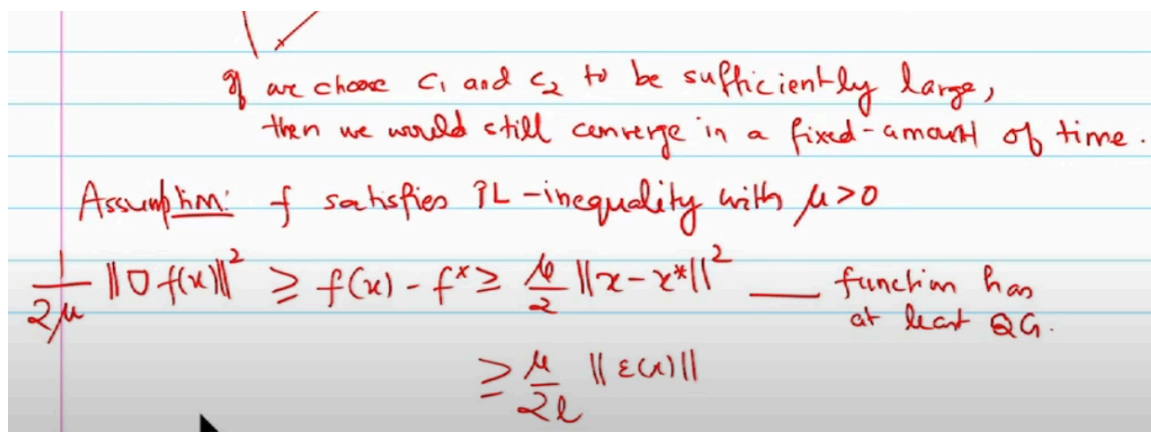 If we choose c₁ and c₂ to be sufficiently large,
then we would still converge in a fixed-amount of time.
Assumption: f satisfies PL-inequality with μ>0
1/2μ ||∇f(x)||² ≥ f(x) - f* ≥ μ/2 ||x-x*||² — function has
at least QG.
≥ μ/2l ||ε(x)||